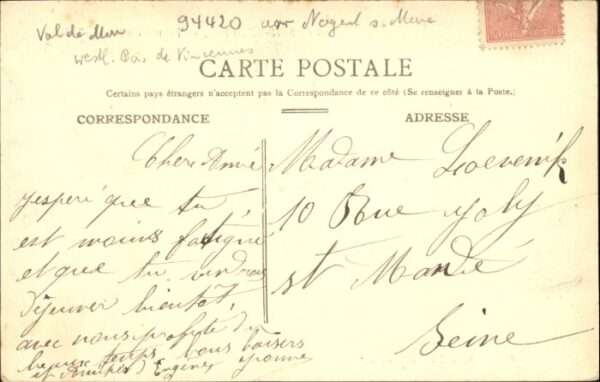 Val de Mar 94420 arr Nogent s. Marne
westl. Bois de Vincennes
CARTE POSTALE
Certains pays étrangers n'acceptent pas la Correspondance de ce côté (Se renseigner à la Poste.)
CORRESPONDANCE
ADRESSE
Chere Amie
j'espere que tu
est moins fatigué
et que tu viendras
déjeuner bientôt,
avec nous profité du
beaux temps, vous baisers
et Eugène Yvonne
Madame
10 Rue Joly
St Mandé
Seine